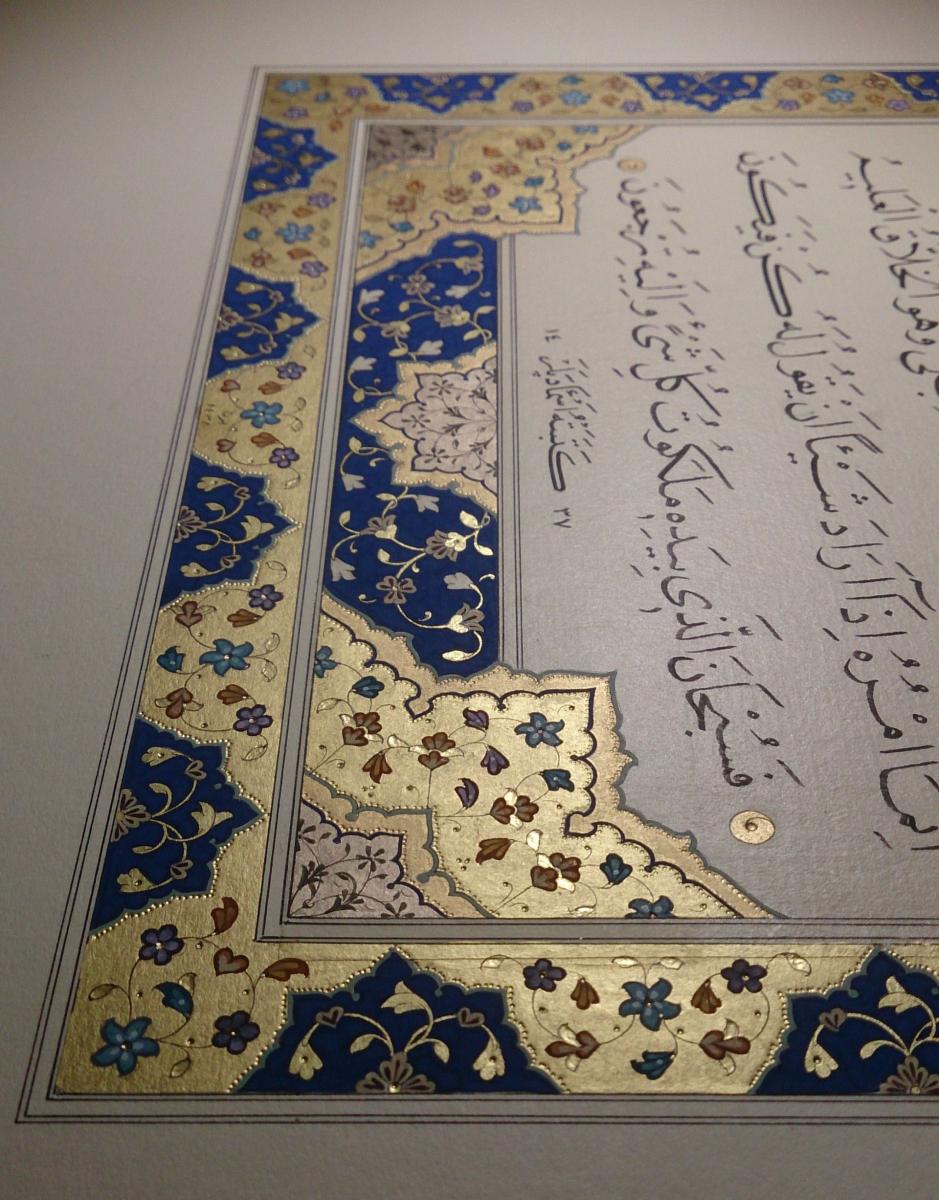 بَلَىٰ وَهُوَ الْخَلَّاقُ الْعَلِيمُ
إِنَّمَا أَمْرُهُ إِذَا أَرَادَ شَيْئًا أَنْ يَقُولَ لَهُ كُنْ فَيَكُونُ
فَسُبْحَانَ الَّذِي بِيَدِهِ مَلَكُوتُ كُلِّ شَيْءٍ وَإِلَيْهِ تُرْجَعُونَ
٣٧ كَتَبَهُ ١٤